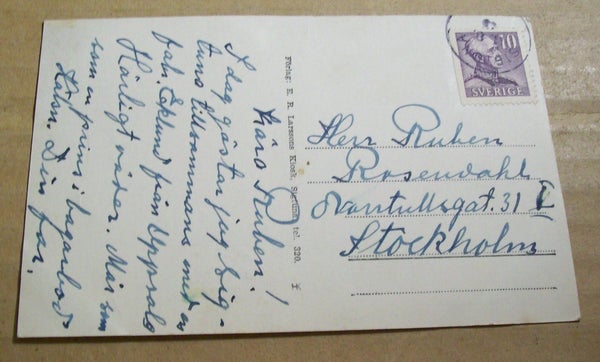 Kära Ruben!
I dag gästar jag Sig-
tuna tillsammans med
fab. Eklund från Uppsala
Härligt väder. Mår som
som en prins i bagarbod
Hälsn. Din far.
Förlag: E. R. Larssons Kiosk, Sigtuna, tel. 320.
10
SVERIGE
Herr Ruben
Rosendahl
Norrtullsgat. 31 I
Stockholm